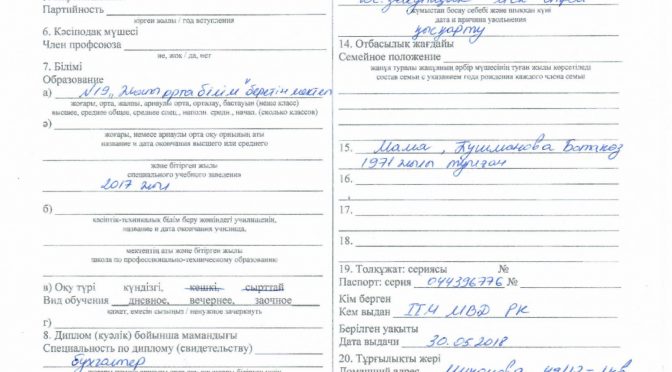 Партийность
кірген жылы / год вступления
6. Кәсіподақ мүшесі
Член профсоюза
ие, жоқ / да, нет
7. Білімі
Образование
а) N19 „Жалпы орта білім" беретін мектеп
жоғары, орта, жалпы, арнаулы орта, орталау, бастауыш (неше класс)
высшее, среднее общее, среднее спец., неполн. средн., начал. (сколько классов)
ә)
жоғары, немесе арнаулы орта оқу орнының аты
название и дата окончания высшего или среднего
және бітірген жылы
специального учебного заведения
2017 жыл
б)
кәсіптік-техникалық білім беру жөніндегі училищенің,
название и дата окончания училища,
мектептің аты және бітірген жылы
школа по профессионально-техническому образованию
в) Оқу түрі күндізгі, кешкі, сырттай
Вид обучения дневное, вечернее, заочное
қажет, емесін сызыңыз / ненужное зачеркнуть
г)
8. Диплом (куәлік) бойынша мамандығы
Специальность по диплому (свидетельству)
бухгалтер
жұмыстан босау себебі және шыққан күні
дата и причина увольнения
қысқарту
14. Отбасылық жағдайы
Семейное положение
жанұя туралы жанұяның әрбір мүшесінің туған жылы көрсетіледі
состав семьи с указанием года рождения каждого члена семьи
15. Мама,
1971 жылы туылған
16.
17.
18.
19. Толқұжат: сериясы №
Паспорт: серия 044396776 №
Кім берген
Кем выдан МВД РК
Берілген уақыты
Дата выдачи 30.05.2018
20. Тұрғылықты жері
Домашний адрес